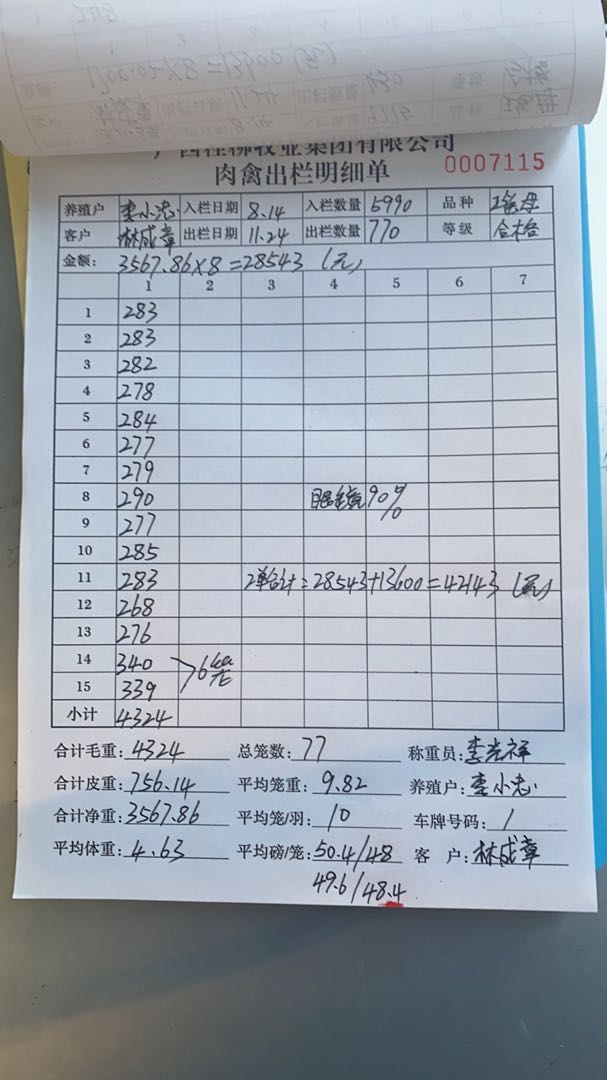 广西桂柳牧业集团有限公司
肉禽出栏明细单 0007115
养殖户 李小志 入栏日期 8.14 入栏数量 5990 品种
客户 林成章 出栏日期 11.24 出栏数量 770 等级 合格
金额: 3567.86×8=28543 (元)
1 2 3 4 5 6 7
1 283
2 283
3 282
4 278
5 284
6 277
7 279
8 290 90%
9 277
10 285
11 283 2单合计=28543+13600=42143 (元)
12 268
13 276
14 340 >6笼
15 339
小计 4324
合计毛重: 4324 总笼数: 77 称重员: 李光祥
合计皮重: 756.14 平均笼重: 9.82 养殖户: 李小志
合计净重: 3567.86 平均笼/羽: 10 车牌号码: /
平均体重: 4.63 平均磅/笼: 50.4/48 客 户: 林成章
49.6/48.4